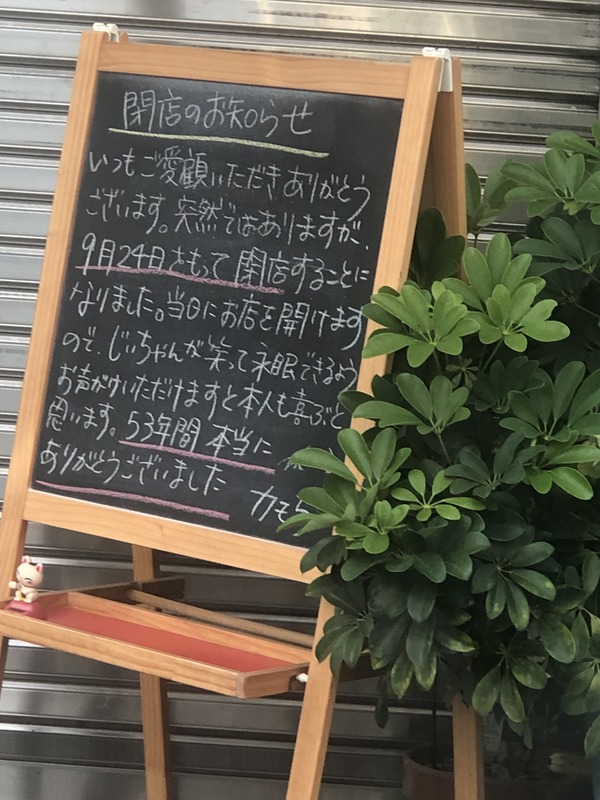 閉店のお知らせ
いつもご愛顧いただきありがとう
ございます。突然ではありますが、
9月24日をもって閉店することに
なりました。当日にお店を開けます
ので、じいちゃんが笑って永眠できるよう
お声がけいただけますと本人も喜ぶと
思います。53年間 本当に
ありがとうございました